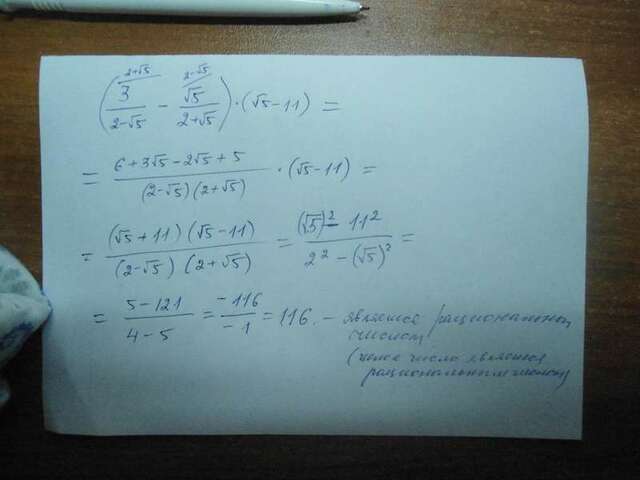 (3/(2-√5) ^(2+√5) - √5/(2+√5) ^(2-√5)) · (√5-11) =
= (6+3√5-2√5+5)/((2-√5)(2+√5)) · (√5-11) =
= ((√5+11)(√5-11))/((2-√5)(2+√5)) = ((√5)² - 11²)/(2² - (√5)²) =
= (5-121)/(4-5) = -116/-1 = 116. - является рациональным
числом
(целое число является
рациональным числом)